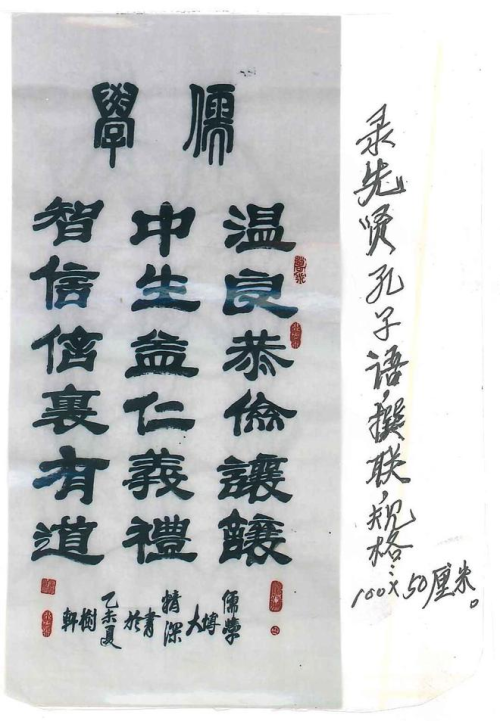 儒學
温良恭儉讓釀
中生益仁義禮
智信信裏有道
儒学
博大
精深
書於
乙未夏
樹軒
录先贤孔子语,撰联,规格:
100×50厘米。